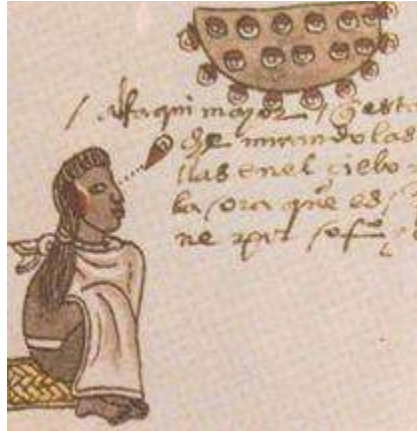 alfaqui mayor / q̃ esta
de mirando las
llas en el çielo
la ora que es
ne por ofiº